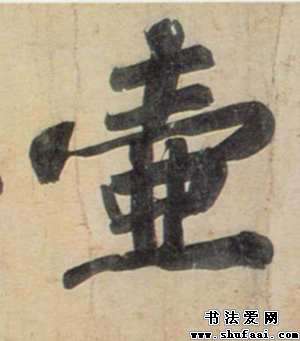 壷
书法爱网
www.shufaai.com